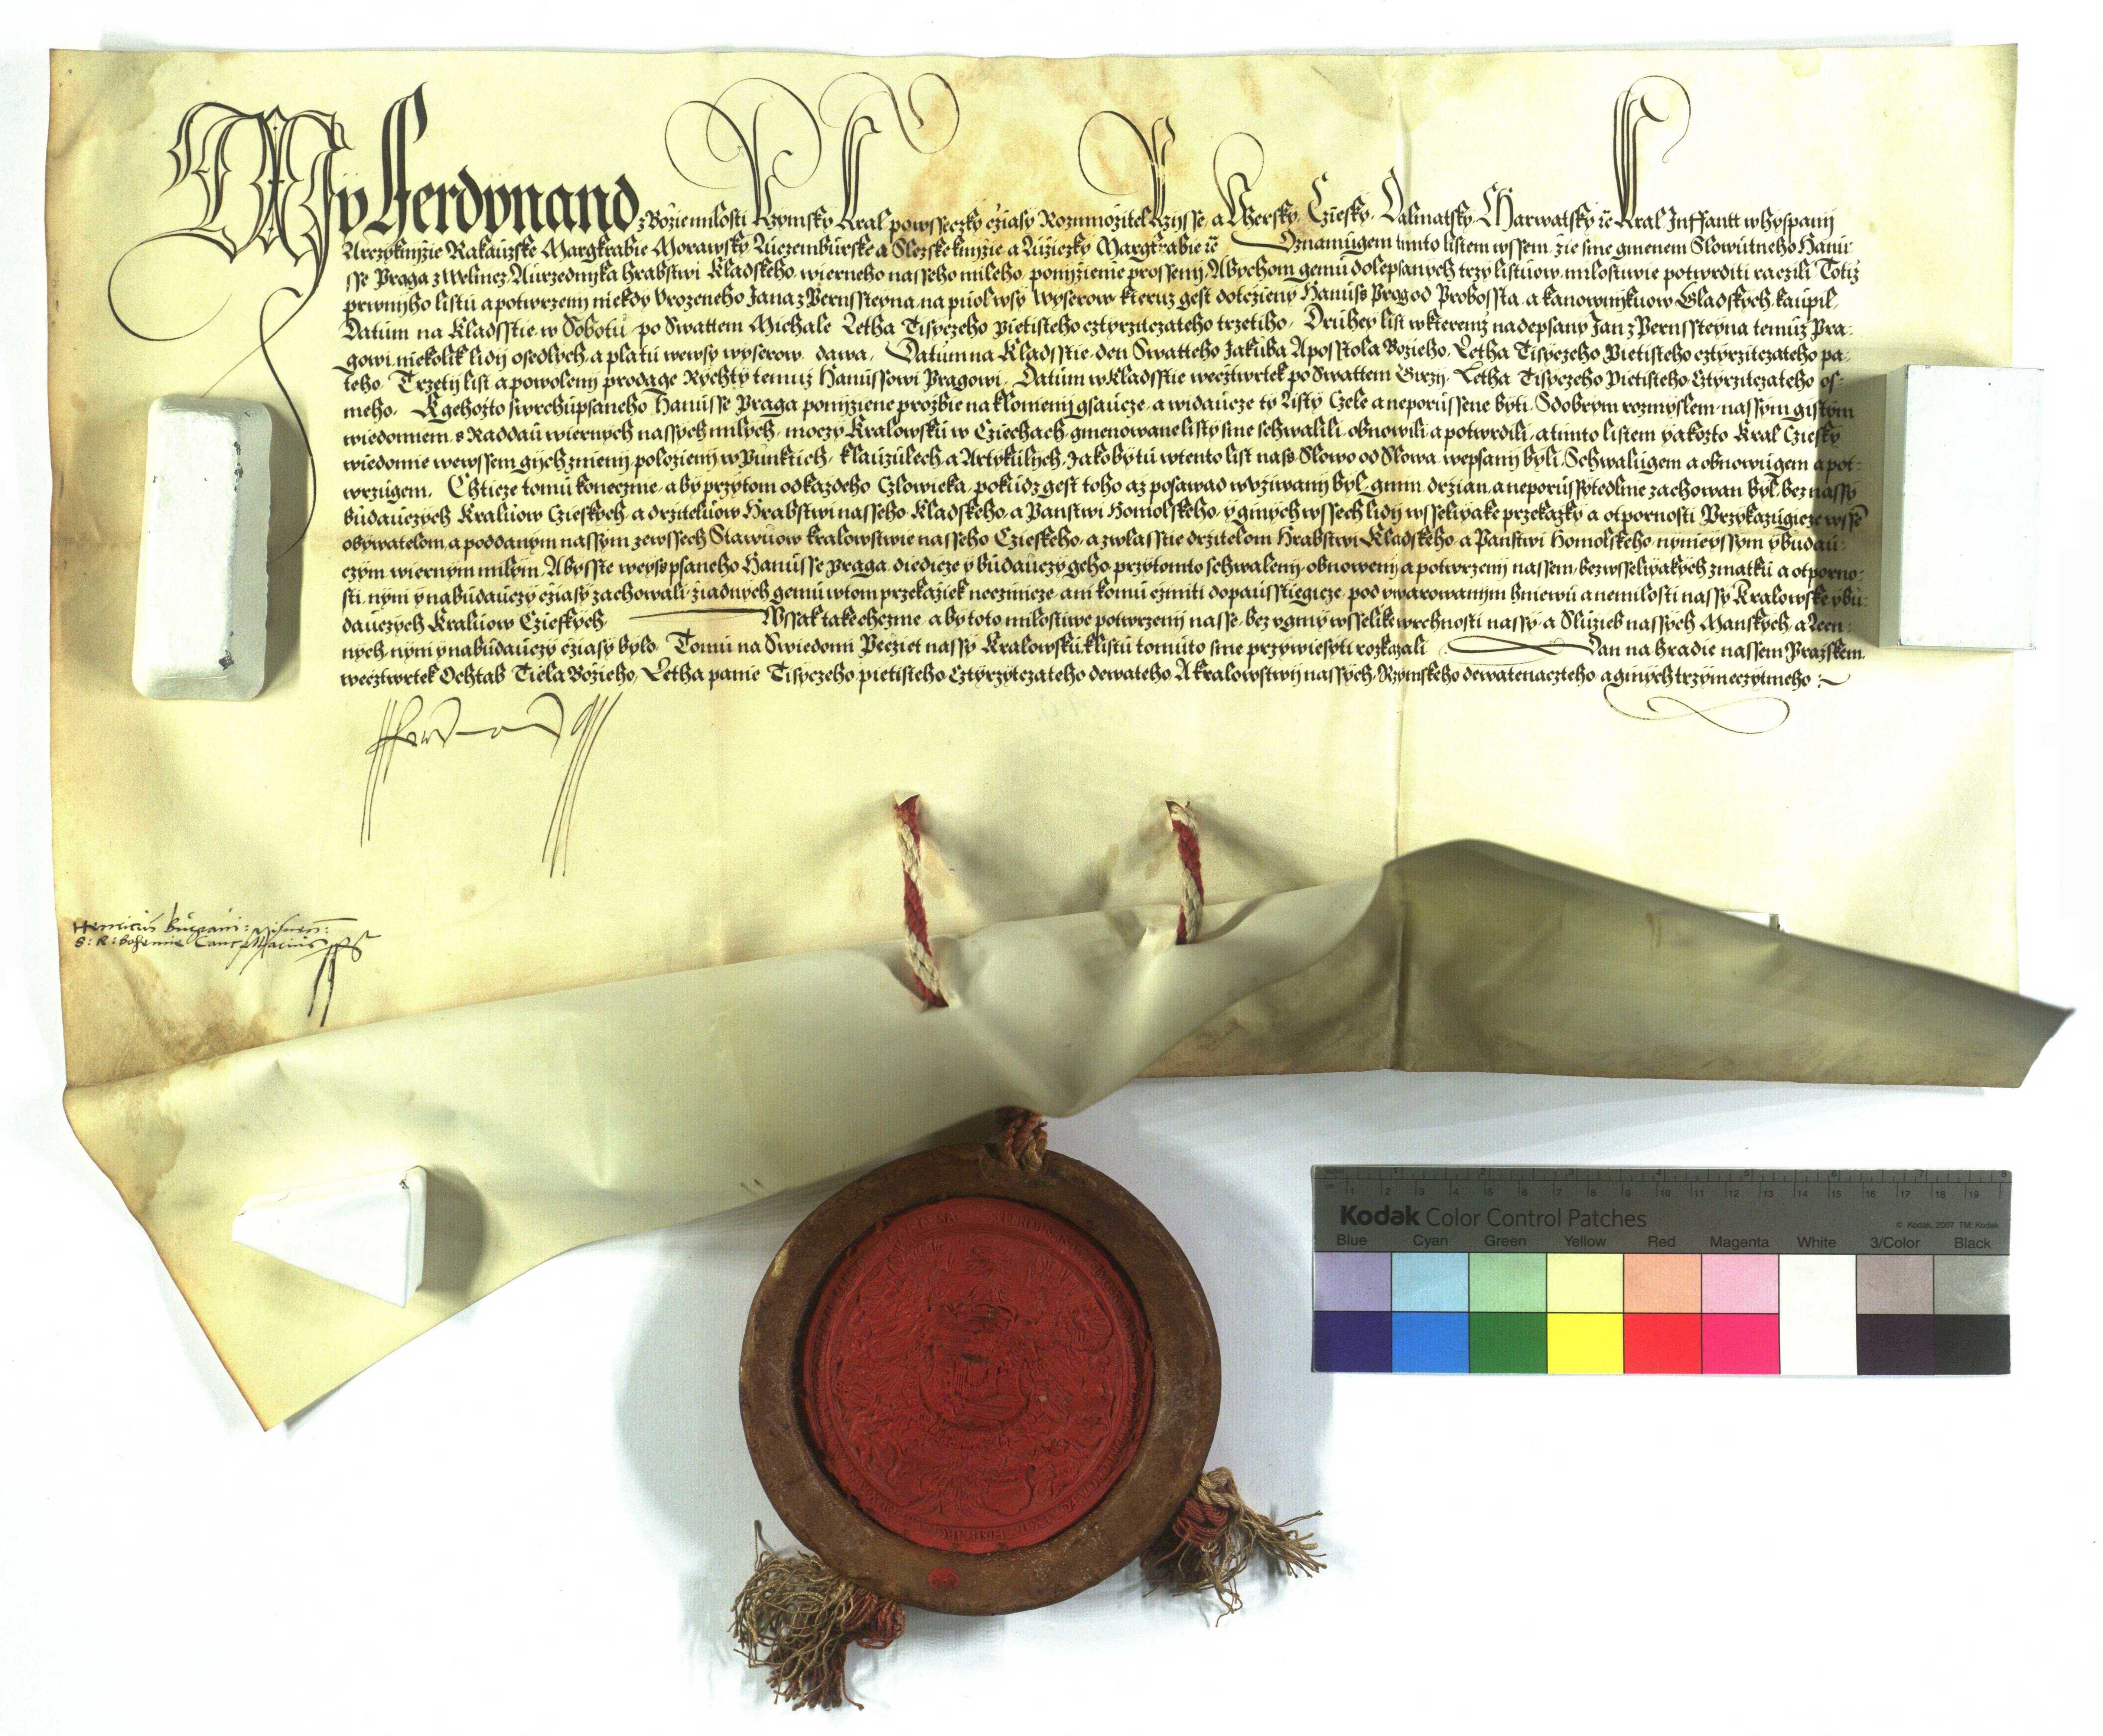 My Ferdynand z Božie milosti Rzymsky Kral powsseczky cžiasy Rozmnožitel Rzijsse, a Uhersky, Cžiesky, Dalmatsky Charwatsky ꝛc̄ Kral Inffantt w hyspanij
Arczyknijžie Rakauzske Margkrabie Morawsky Luczemburske a Slezske knijžie a Lužiczky Margkrabie ꝛc̄ Oznamugem tiimto listem wssem, žie sme gmenem Slowutneho Hanu
sse Praga z Welmcz Aurzednijka hrabstwi Kladskeho, wierneho nasseho mileho, ponijžienie prosseni, Abychom gemu dolepsanych trzy listuow, milostiwie potwrditi raczili Totiž
prwnijho listu a potwrzenij niekdy Urozeneho Jana z Pernssteyna, na puol wsy Wyserow, kteruz gest dotčieny Hanuss Prag od Probossta, a kanownijkuow Gladskych, kaupil,
Datum na Kladsstie, w Sobotu, po Swattem Michale Letha Tisyczeho Pietisteho cztyrzitczateho trzetiho, Druhey list w kteremž nadepsany Jan z Pernssteyna temuž Pra-
gowi, niekolik lidij osedlych, a platu wewsy wyserow, dawa, Datum na Kladsstie, den Swatteho Jakuba Aposstola Božieho, Letha Tisyczeho Pietisteho cztyrzitczateho pa-
teho, Trzetij list a powolenij prodage Rychty temuz Hanussowi Pragowi, Datum w Kladsstie we cztwrtek po Swattem Girzij, Letha Tisyczeho Pietisteho Cztyrzitczateho os-
meho, K gehožto swrchupsaneho Hanusse Praga ponijžiene prozbie naklonieni gsaucze, a widaucze ty Listy Czele a neporussene byti, S dobrym rozmyslem, nassym gistym
wiedomiem, s Raddau wiernych nassych milych, moczy Kralowsku w Cžiechach, gmenowane listy sme schwalili, obnowili, a potwrdili, a tiimto listem yakožto Kral Cziesky
wiedomie wewssem gijch znienij položienij w Punktich, klauzulech, a Artykulijch, Jakoby tu w tento list nass, Slowo od Slowa, wepsany byli, Schwalugem a obnowugem a pot-
wrzugem, Chticze tomu konecznie, aby przytom od každeho Czlowieka, pokudz gest toho až posawad w užiwany byl, gmin, držian, a neporussytedlnie zachowan byl, bez nassy
buduczych Kraluow Czieskych, a držiteluow Hrabstwi nasseho Kladskeho, a Panstwi Homolskeho, y ginych wssech lidij wsselijake przekažky a otpornosti Przykazugicze wssē
obywatelom, a poddanym nassym ze wssech Stawuow kralowstwie nasseho Czieskeho, a zwlasstie držitelom Hrabstwi Kladskeho, a Panstwi Homolskeho, nynieyssym y budau-
czym, wiernym milym, Abysste weyss psaneho Hanusse Praga, diedicze y buduczy geho, przytomto schwaleni, obnowenij a potwrzeni nassem, bez wsselijakych zmatku a otporno-
sti, nynij y na buduczy cžiasy zachowali, žiadnych gemu w tom przekažiek neczinicze, ani komu cziniti dopausstiegicze, pod uwarowanijm hniewu a nemilosti nassy Kralowske y bu-
dauczych Kraluow Czieskych. Wssak take chczme, aby toto milostiwe potwrzenij nasse, bez ugmy wsselike wrchnosti nassy, a Služieb nassych Manskych, a Leen-
nych, nynij y na buduczy cžiasy bylo. Tomu na Swiedomi Peczet nassy Kralowsku k listu tomuto sme przywiesyti rozkazali Dan na hradie nassem Pražskem
we cztwrtek Ochtab Tiela Božieho, Letha panie Tisyczeho pietisteho Cztyrzytczateho dewateho A kralowstwij nassych, Rzymskeho dewatenaczteho, a ginych trzymeczytmeho
Ferdinand
Henricus Burgravi: Misnen:
S: R: Bohemie Cancellarius
Kodak Color Control Patches
© Kodak, 2007 TM: Kodak
Blue Cyan Green Yellow Red Magenta White 3/Color Black